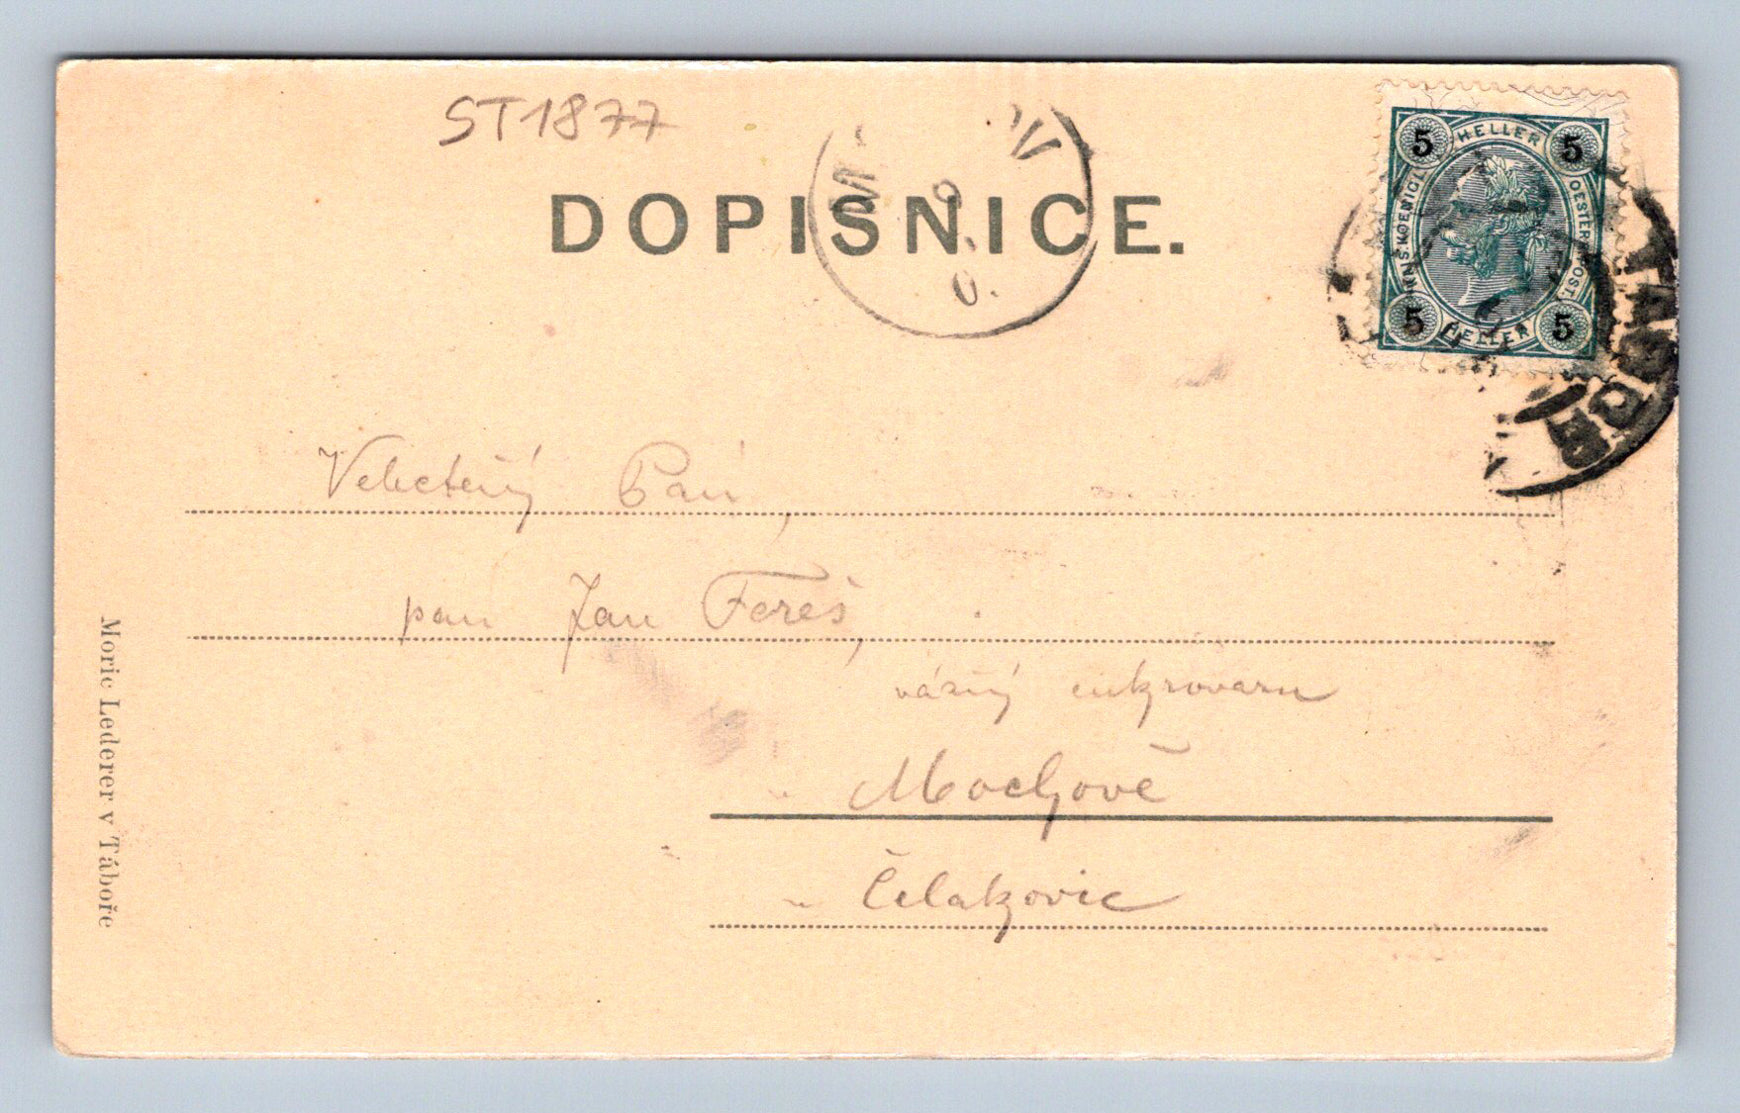 ST1877
DOPISNICE.
5 HELLER 5
KAIS. KOENIGL. OESTERR. POST.
5 HELLER 5
TABOR
Velectěný Pan,
pan Jan Fereš,
vázný cukrovaru
Mochově
u Čelakovic
Moric Lederer v Táboře